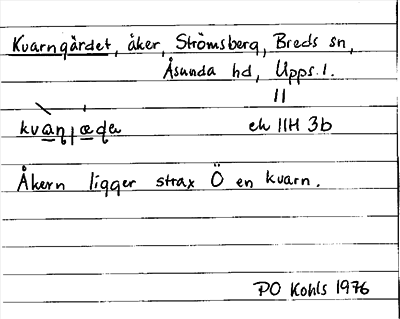 Kvarngärdet, åker, Strömsberg, Breds sn,
Åsunda hd, Upps. l.
11
ek 11H 3b
Åkern ligger strax Ö en kvarn.
PO Kohls 1976